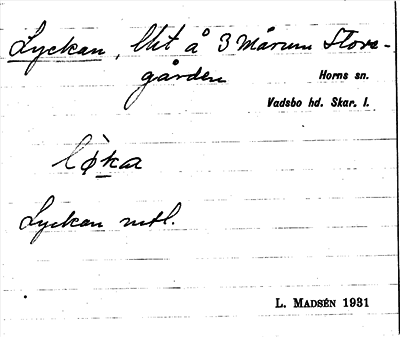 Lyckan, Utt å 3 Mårum Stora-
gården
Horns sn.
Vadsbo hd. Skar. l.
lø̀ka
Lyckan mtl.
L. MADSÉN 1931